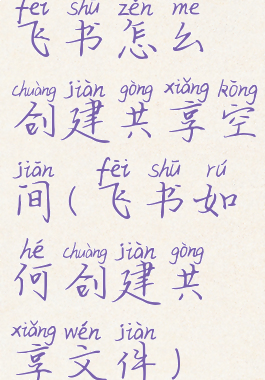 fēi shū zěn me
飞书怎么
chuàng jiàn gòng xiǎng kōng
创建共享空
jiān fēi shū rú
间(飞书如
hé chuàng jiàn gòng
何创建共
xiǎng wén jiàn
享文件)